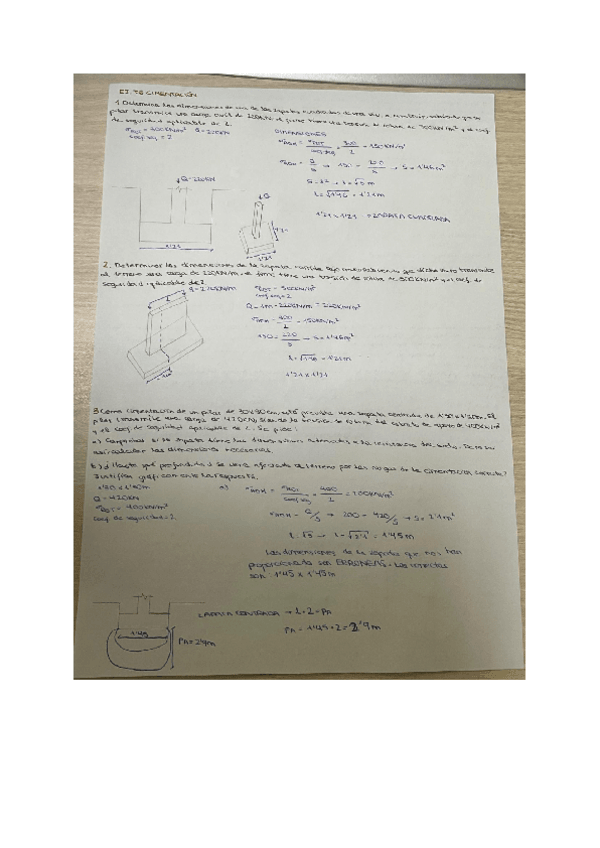 EJ. T8 CIMENTACIÓN
1. Determina las dimensiones de una de las zapatas cuadradas
pilar transmite una carga 220KN, el firme tiene una tensión de rotura de 300KN/m² y el coef.
de seguridad aplicable de 2.
Q=220KN
coef. seg = 2
DIMENSIONES
σADM = σROT / coef. seg = 300 / 2 = 150KN/m²
σADM = Q / S → 150 = 220 / S → S = 1'46m²
L = √1'46 = 1'21m
1'21 x 1'21 = ZAPATA CUADRADA
Q=220KN
Q
1'21
1'21
2. Determinar las dimensiones de la zapata corrida bajo muro sabiendo que dicho muro transmite
al terreno una carga de 220KN/m, el firme tiene una tensión de rotura de 300KN/m² y un coef. de
seguridad aplicable de 2.
Q=220KN/m
σROT = 300KN/m²
coef. seg = 2
Q = 1m = 220KN/m =
150KN/m²
150 = 220 / S → S = 1'46m²
L = √1'46 = 1'21m
1'21 x 1'21
3. Como cimentación de un pilar de 30x30cm, está prevista una zapata cuadrada de
pilar transmite una carga de 420KN, siendo la tensión de rotura del estrato de apoyo de 400KN/m²
y el coef. de seguridad aplicable de 2. Se pide:
a) Comprobar si la zapata tiene las dimensiones adecuadas a la resistencia del suelo. De no ser
así calcular las dimensiones necesarias.
b) ¿Hasta qué profundidad se verá afectado el terreno por las cargas de la cimentación correcta?
Justifica gráficamente la respuesta.
Q = 420KN
σROT = 400KN/m²
coef. de seguridad = 2
a) σADM = σROT / coef. seg = 400 / 2 = 200KN/m²
σADM = Q/S → 200 = 420/S → S = 2'1m²
L = √S → L = √2'1 = 1'45m
Las dimensiones de la zapata que nos han
proporcionado son ERRÓNEAS. Las correctas
son: 1'45 x 1'45m
1'45
PA = 2'9m
ZAPATA CUADRADA → L · 2 = PA
PA = 1'45 · 2 = 2'9m